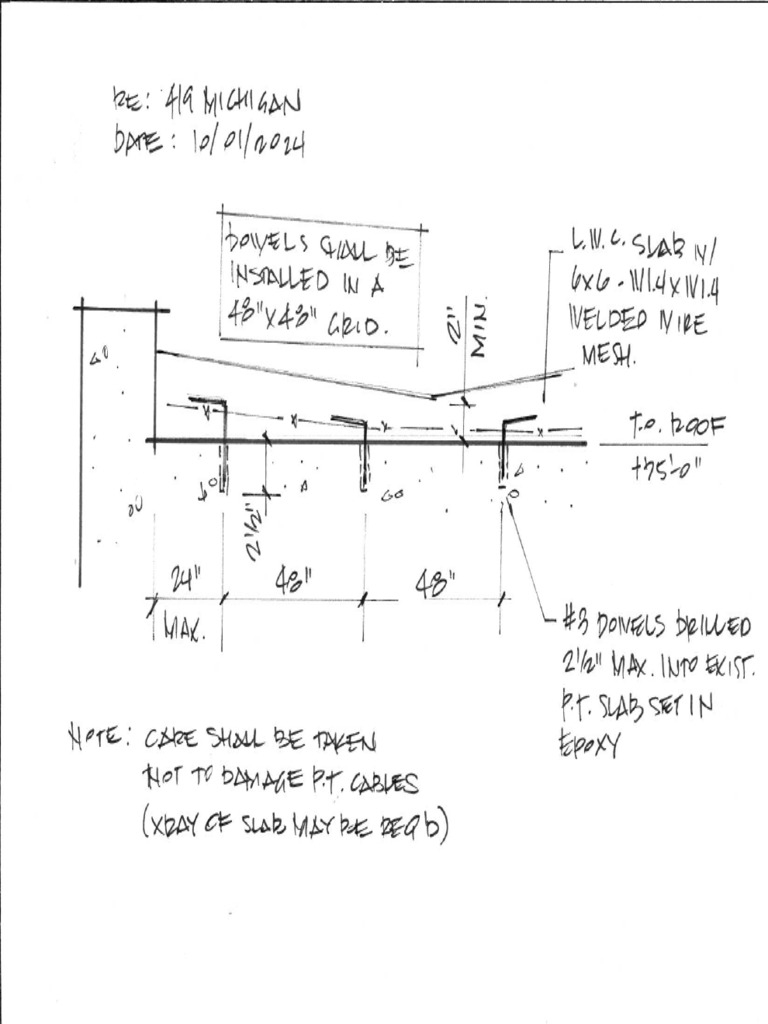 RE: 419 MICHIGAN
DATE: 10/01/2024
DOWELS SHALL BE
INSTALLED IN A
48"X48" GRID.
2"
MIN.
L.W.C. SLAB W/
6X6 - W1.4XW1.4
WELDED WIRE
MESH.
T.O. ROOF
+75'-0"
2 1/2"
24"
MAX.
48"
48"
#3 DOWELS DRILLED
2 1/2" MAX. INTO EXIST.
P.T. SLAB SET IN
EPOXY
NOTE: CARE SHALL BE TAKEN
NOT TO DAMAGE P.T. CABLES
(XRAY OF SLAB MAY BE REQ'D)